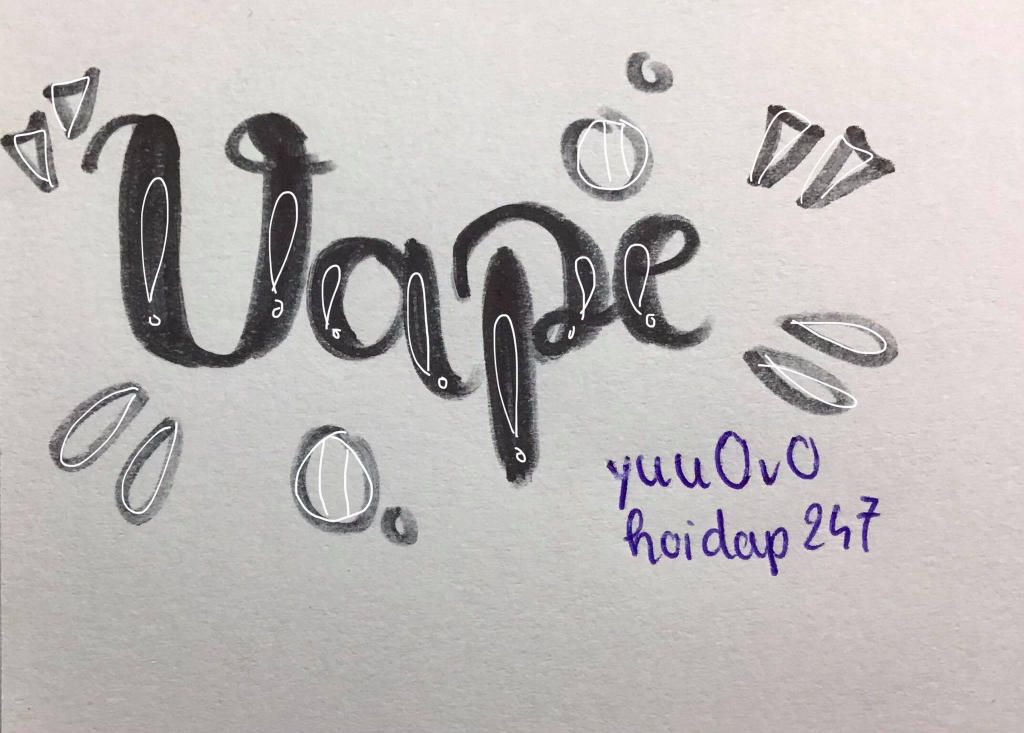 Vape
yuuOvO
hoidap247